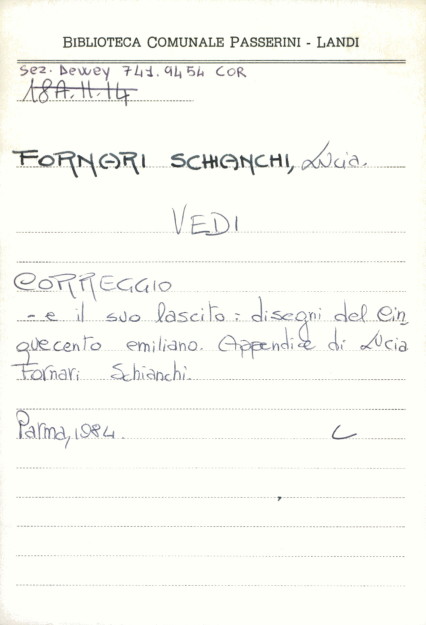 BIBLIOTECA COMUNALE PASSERINI - LANDI
Sez. Dewey 741.9454 COR
18A.II.14
FORNARI SCHIANCHI, Lucia.
VEDI
CORREGGIO
- e il suo lascito : disegni del Cin
quecento emiliano. Appendice di Lucia
Fornari Schianchi.
Parma, 1984.
C